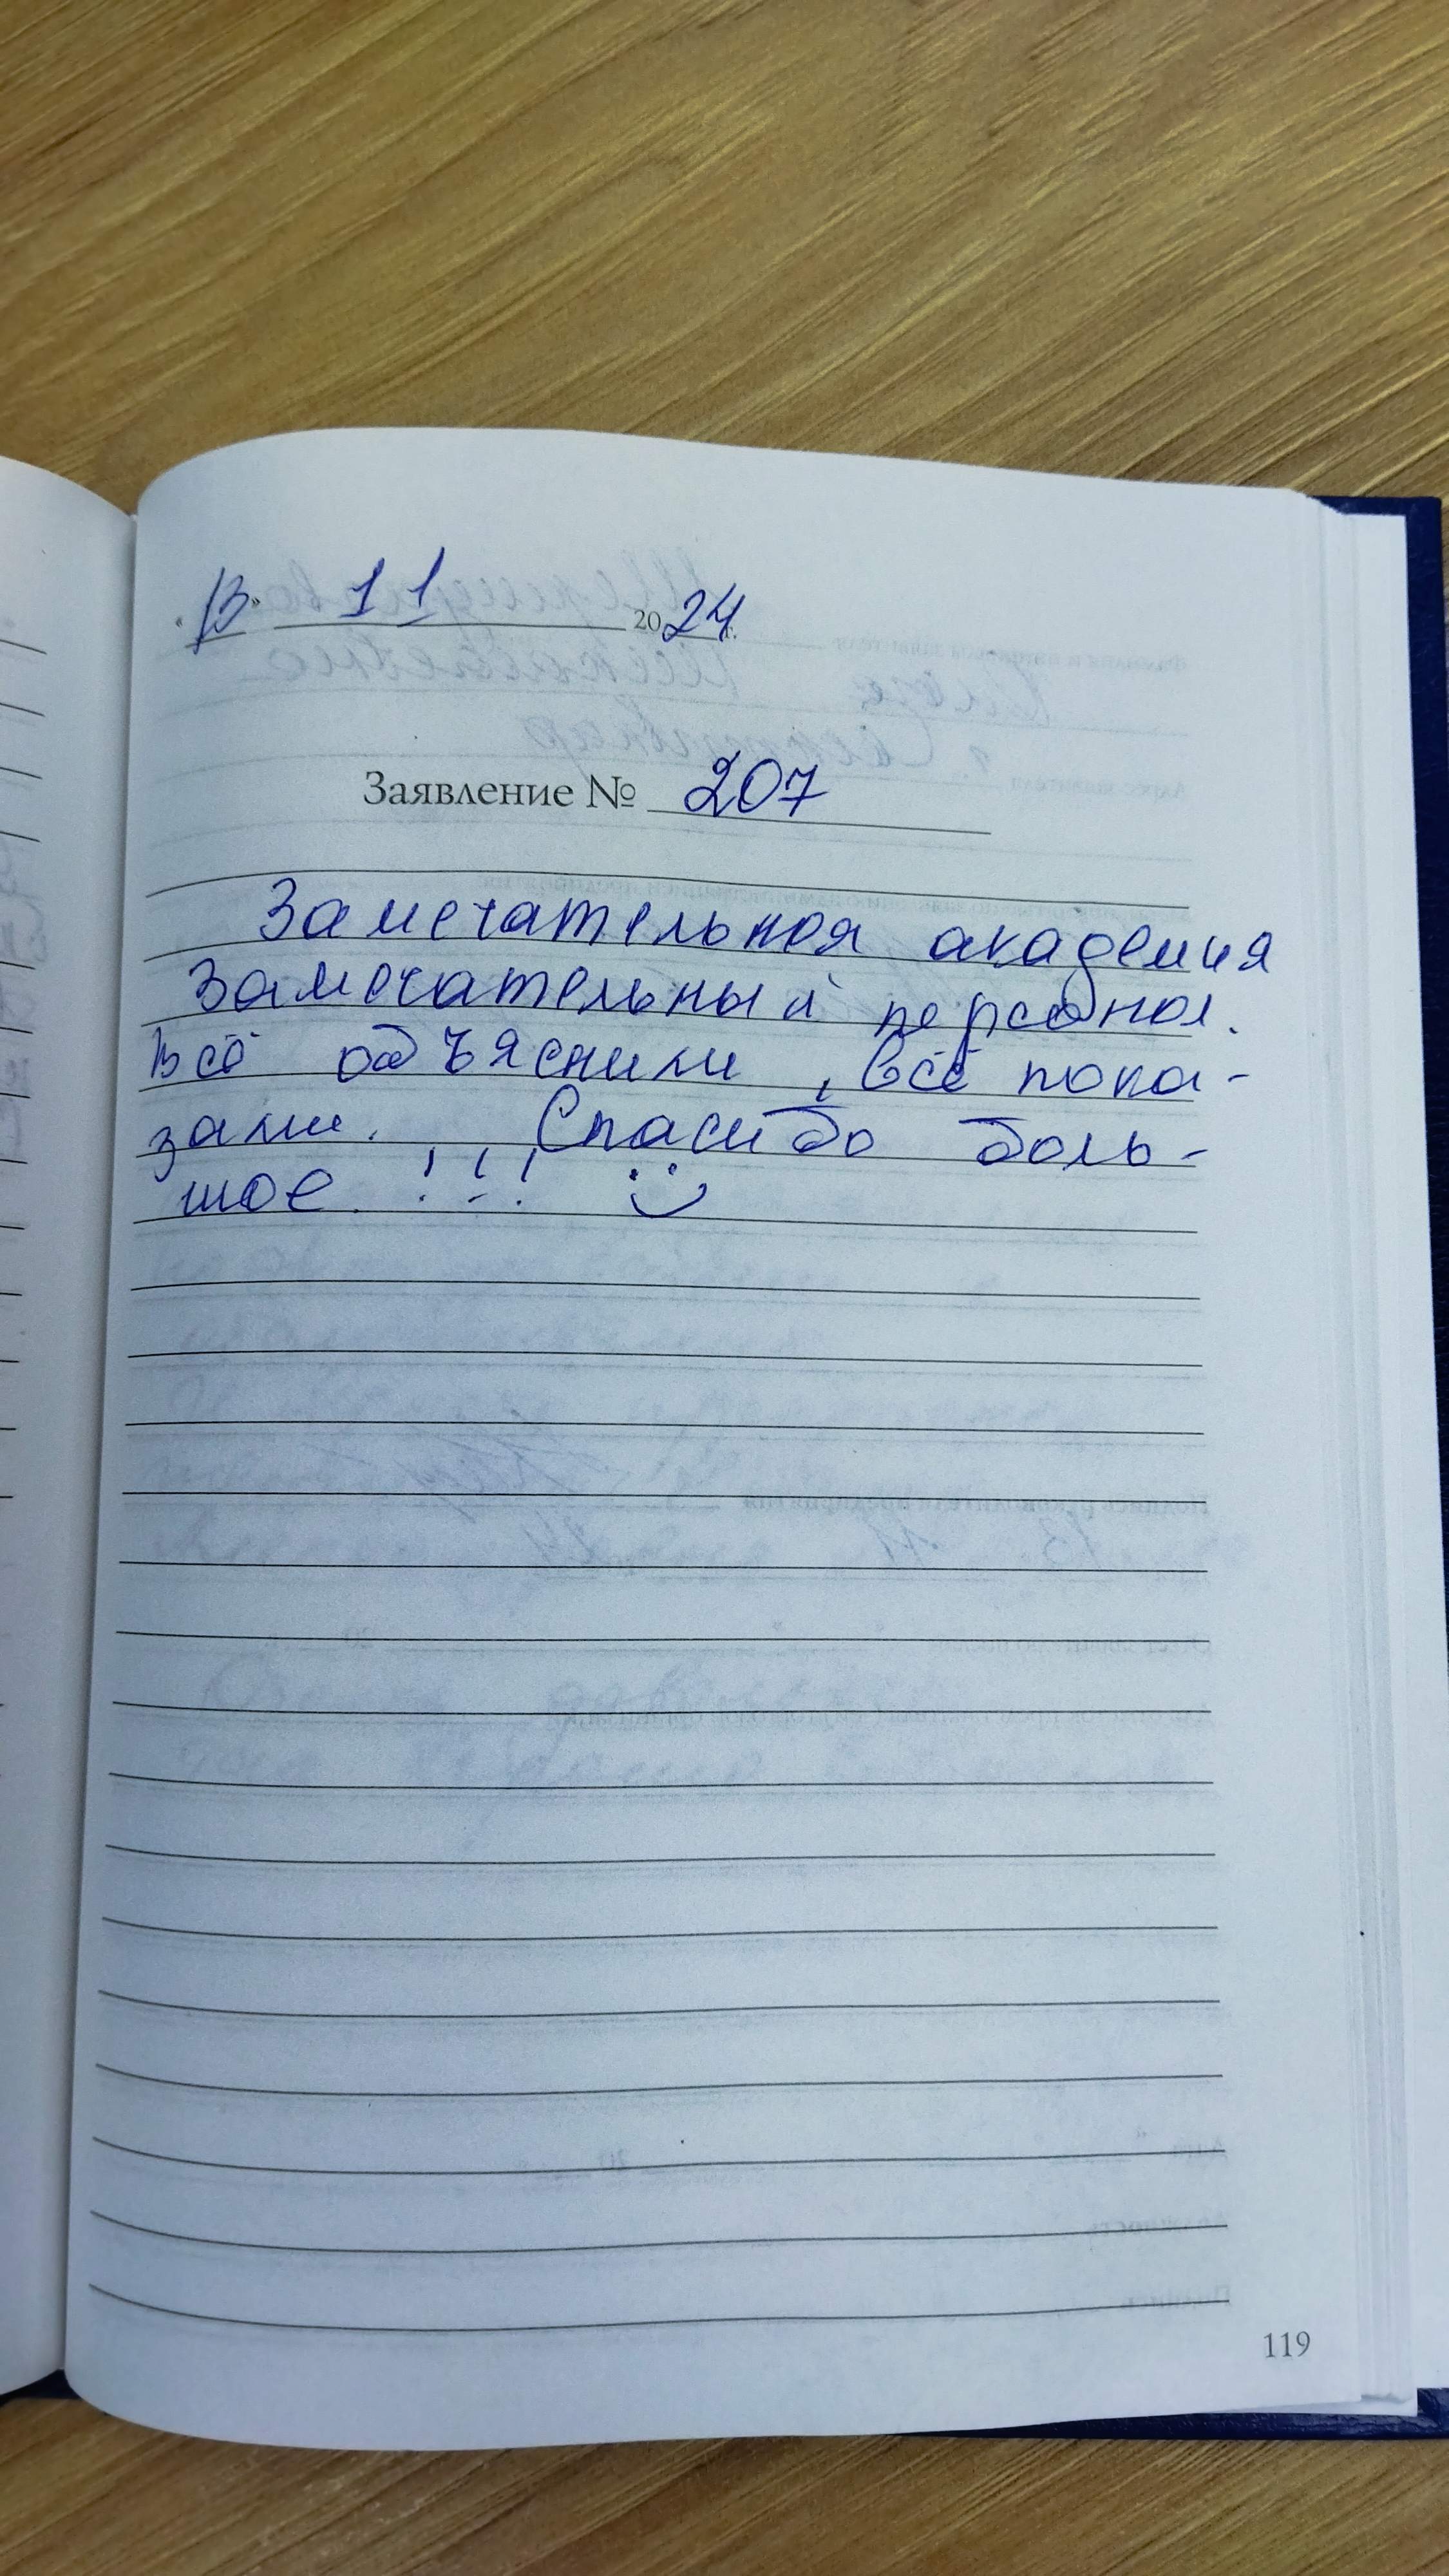 «13» 11 2024 г.
Заявление № 207
Замечательная академия
Замечательный персонал.
Всё объяснили, всё пока-
зали. Спасибо боль-
шое !!!
119